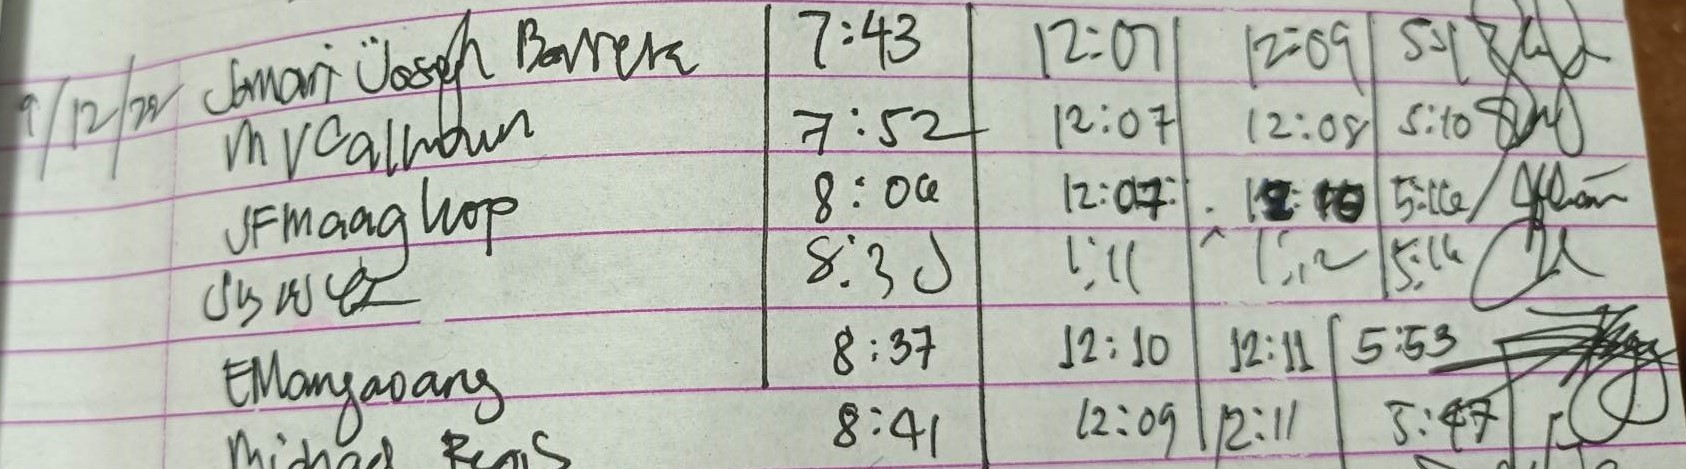 9/12/22 Jomari Joseph Barrera 7:43 12:07 12:09
MVCalhoun 7:52 12:07 12:08 5:10
JFMaaghop 8:06 12:07 12:10 5:16
8:30 1:11 1:12 5:16
EMangaoang 8:37 12:10 12:11 5:53
Michael Regis 8:41 12:09 12:11 5:47